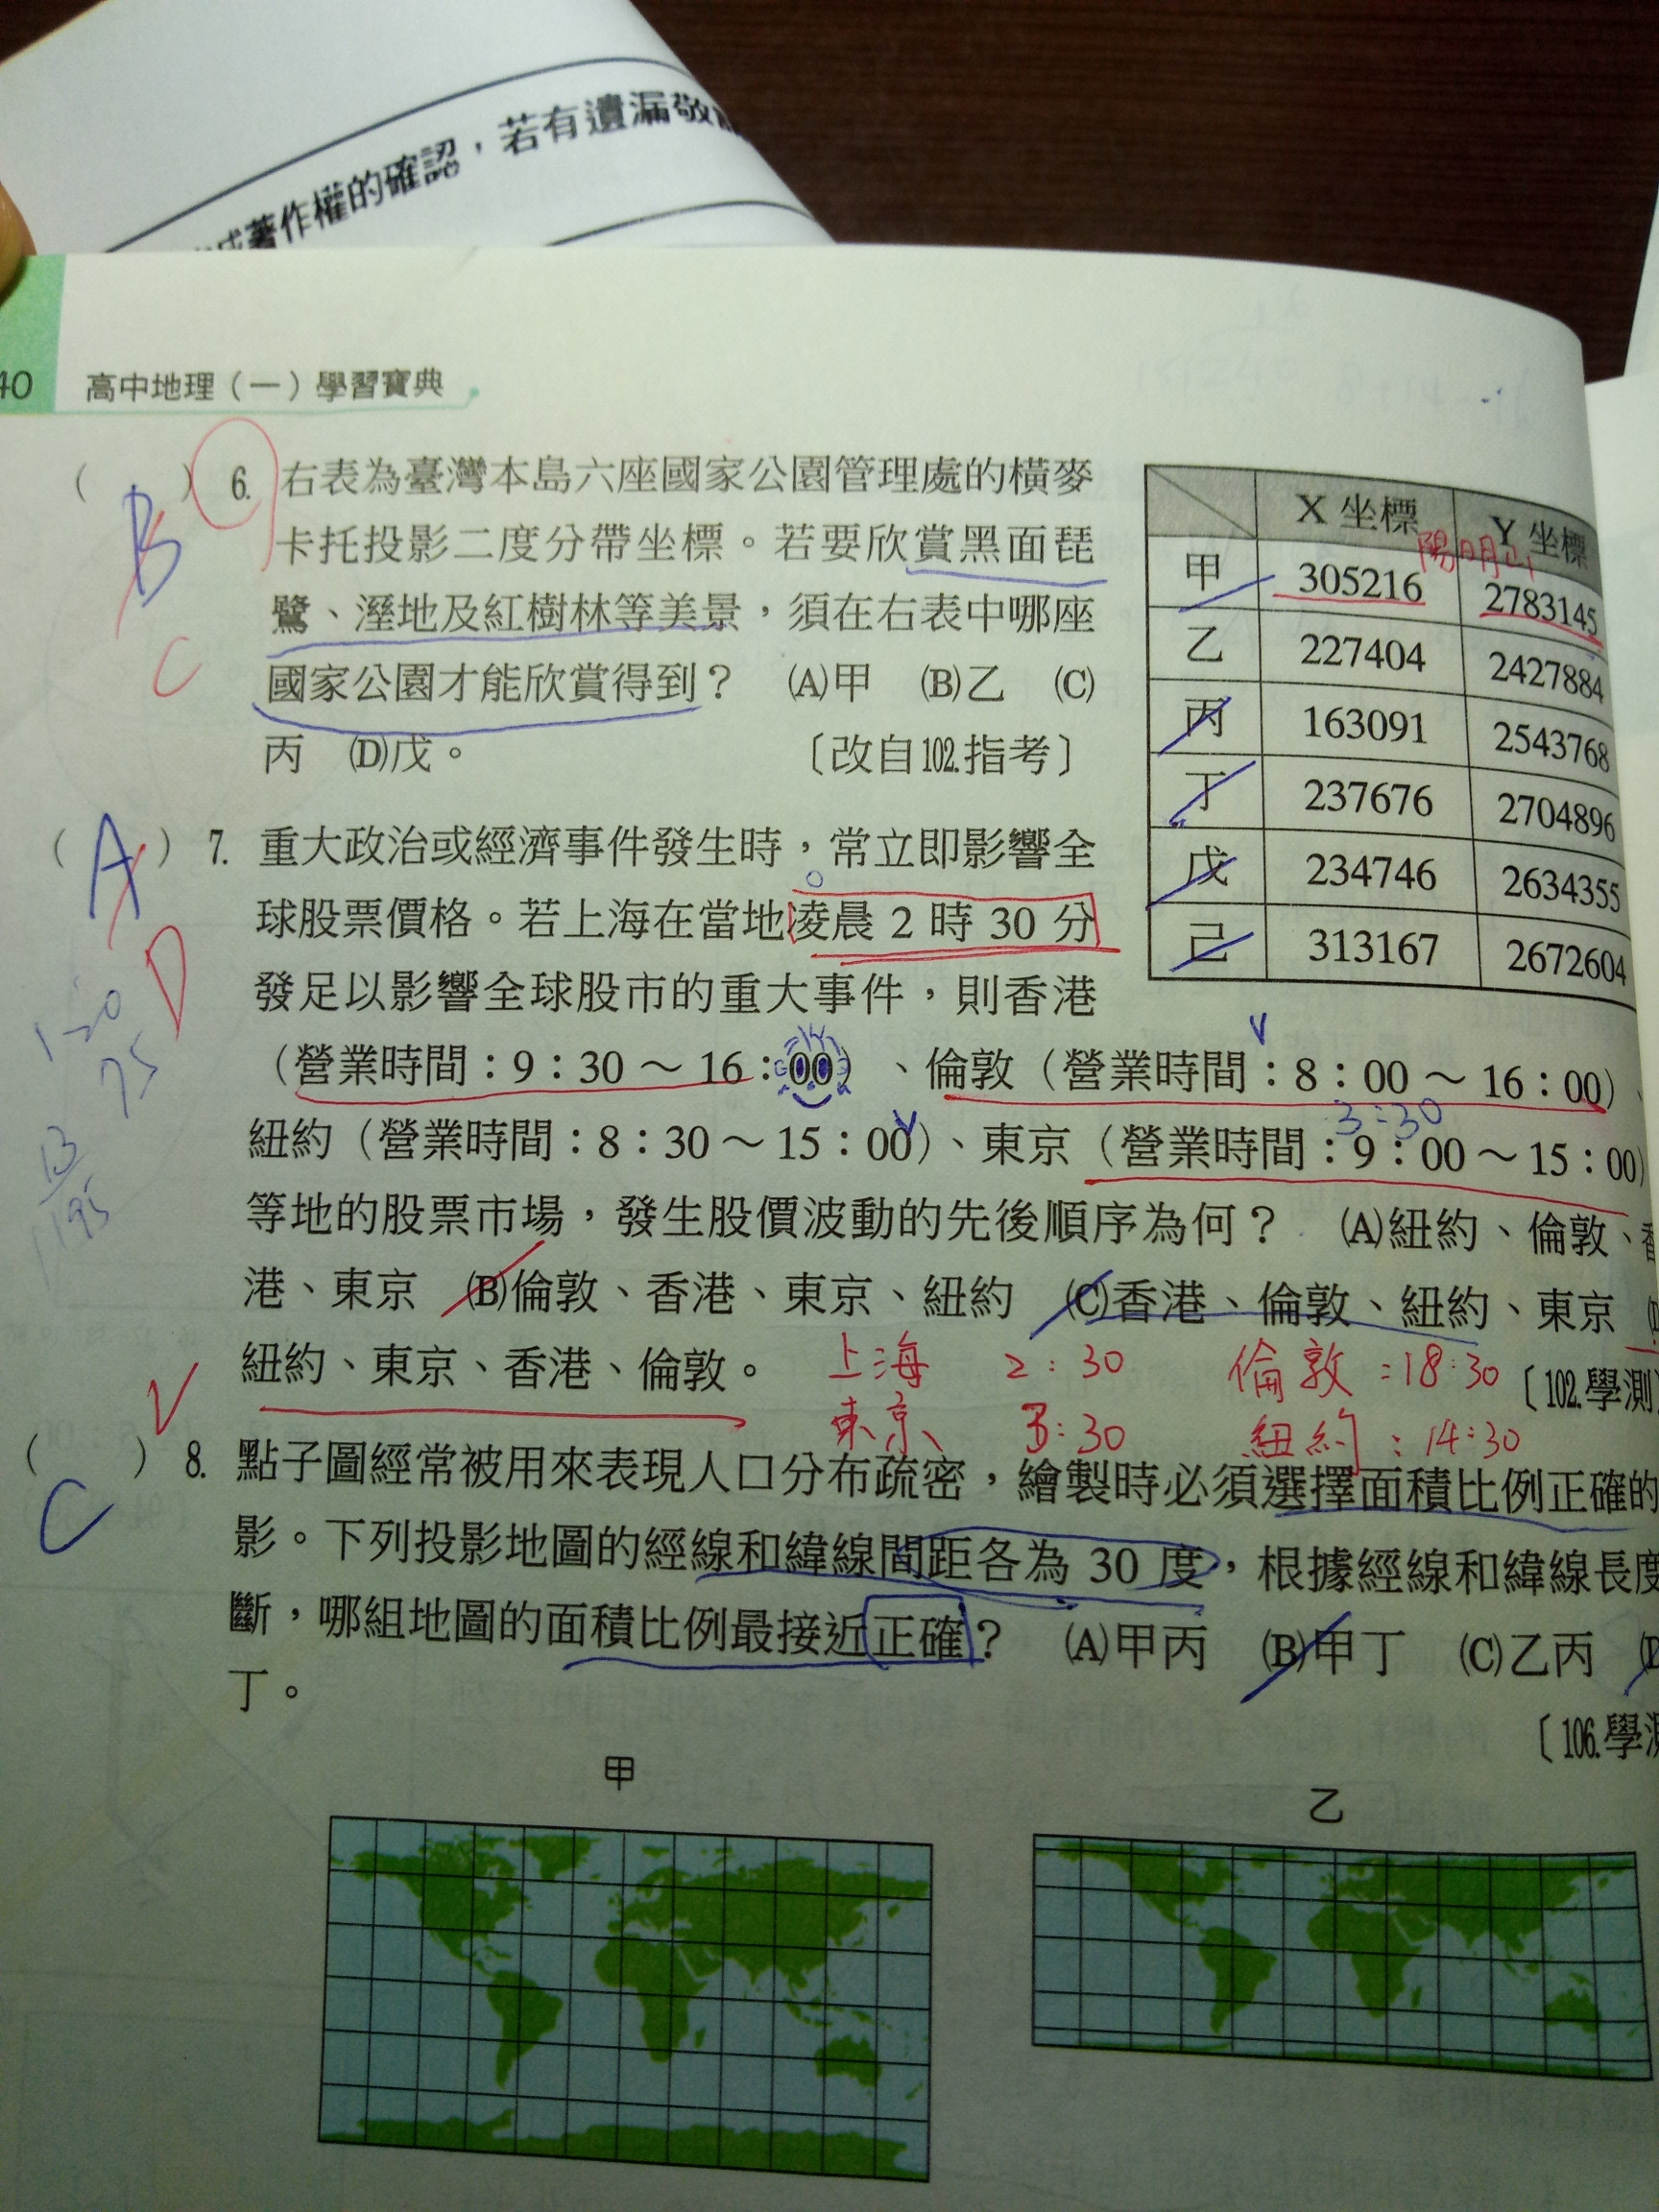 著作權的確認，若有遺漏敬
40 高中地理（一）學習寶典
( B ) 6. 右表為臺灣本島六座國家公園管理處的橫麥
卡托投影二度分帶坐標。若要欣賞黑面琵
鷺、溼地及紅樹林等美景，須在右表中哪座
C
國家公園才能欣賞得到？ (A)甲 (B)乙 (C)
丙 (D)戊。 〔改自102.指考〕
X 坐標 Y 坐標
陽明山
甲 305216 2783145
乙 227404 2427884
丙 163091 2543768
丁 237676 2704896
戊 234746 2634355
己 313167 2672604
( A ) 7. 重大政治或經濟事件發生時，常立即影響全
球股票價格。若上海在當地凌晨 2 時 30 分
D
發足以影響全球股市的重大事件，則香港
（營業時間：9：30～16：00）、倫敦（營業時間：8：00～16：00）、
75
3:30
紐約（營業時間：8：30～15：00）、東京（營業時間：9：00～15：00）
等地的股票市場，發生股價波動的先後順序為何？ (A)紐約、倫敦、香
港、東京 (B)倫敦、香港、東京、紐約 (C)香港、倫敦、紐約、東京 (D
紐約、東京、香港、倫敦。 〔102.學測〕
上海 2:30 倫敦:18:30
東京 3:30 紐約:14:30
( C ) 8. 點子圖經常被用來表現人口分布疏密，繪製時必須選擇面積比例正確的
影。下列投影地圖的經線和緯線間距各為 30 度，根據經線和緯線長度
斷，哪組地圖的面積比例最接近正確？ (A)甲丙 (B)甲丁 (C)乙丙 (D
丁。
〔106.學測
甲
乙